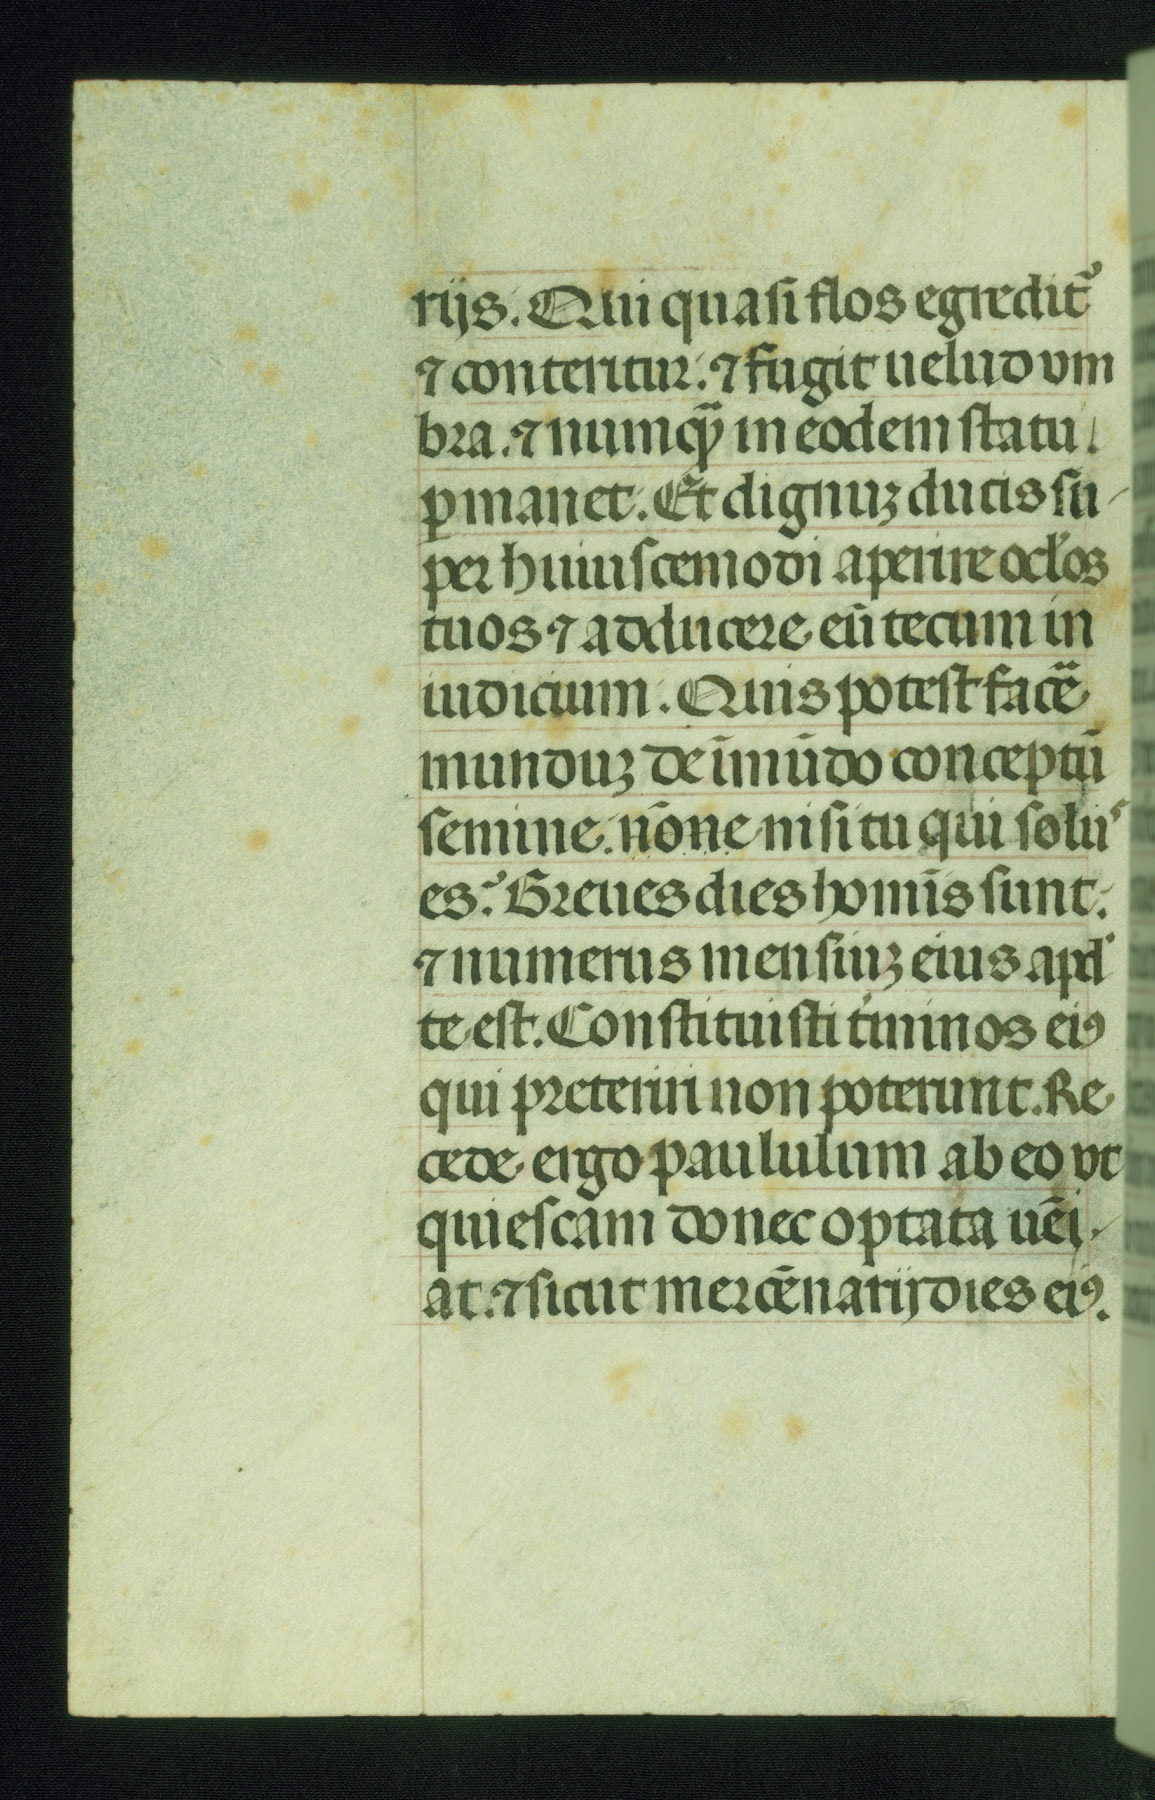 rijs. Qui quasi flos egredit᷑
⁊ conteritur: ⁊ fugit uelud vm
bra. ⁊ numq̃ in eodem statu
ꝑmanet. Et dignuꝫ ducis su
per huiuscemodi aperire oc̄los
tuos ⁊ adducere eū tecum in
iudicium. Quis potest facẽ
munduꝫ de īmūdo conceptū
semine. nōne nisi tu qui soluꝰ
es? Breues dies homīs sunt:
⁊ numerus mensiuꝫ eius apd'
te est. Constituisti t'minos eiꝰ
qui preteriri non poterunt. Re
cede ergo paululum ab eo vt
quiescam donec optata uēi
at. ⁊ sicut mercēnarij dies eiꝰ.